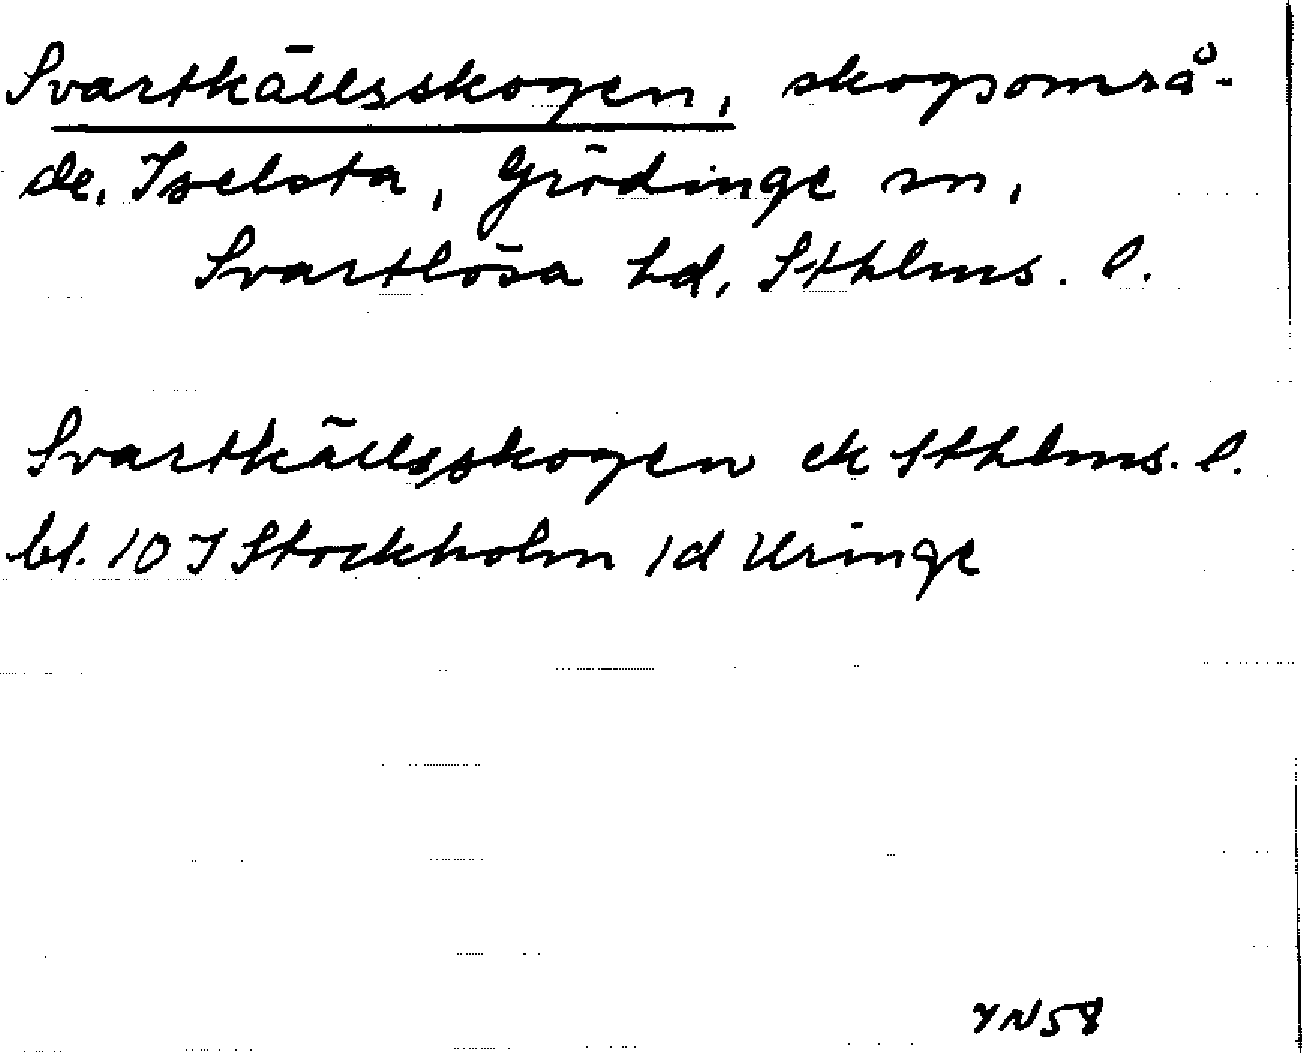 Svartkällsskogen, skogsområ-
de, Iselsta, Grödinge sn,
Svartlösa hd, Sthlms. l.
Svartkällsskogen ek Sthlms. l.
bl. 10 I Stockholm 1d Uringe
YN58